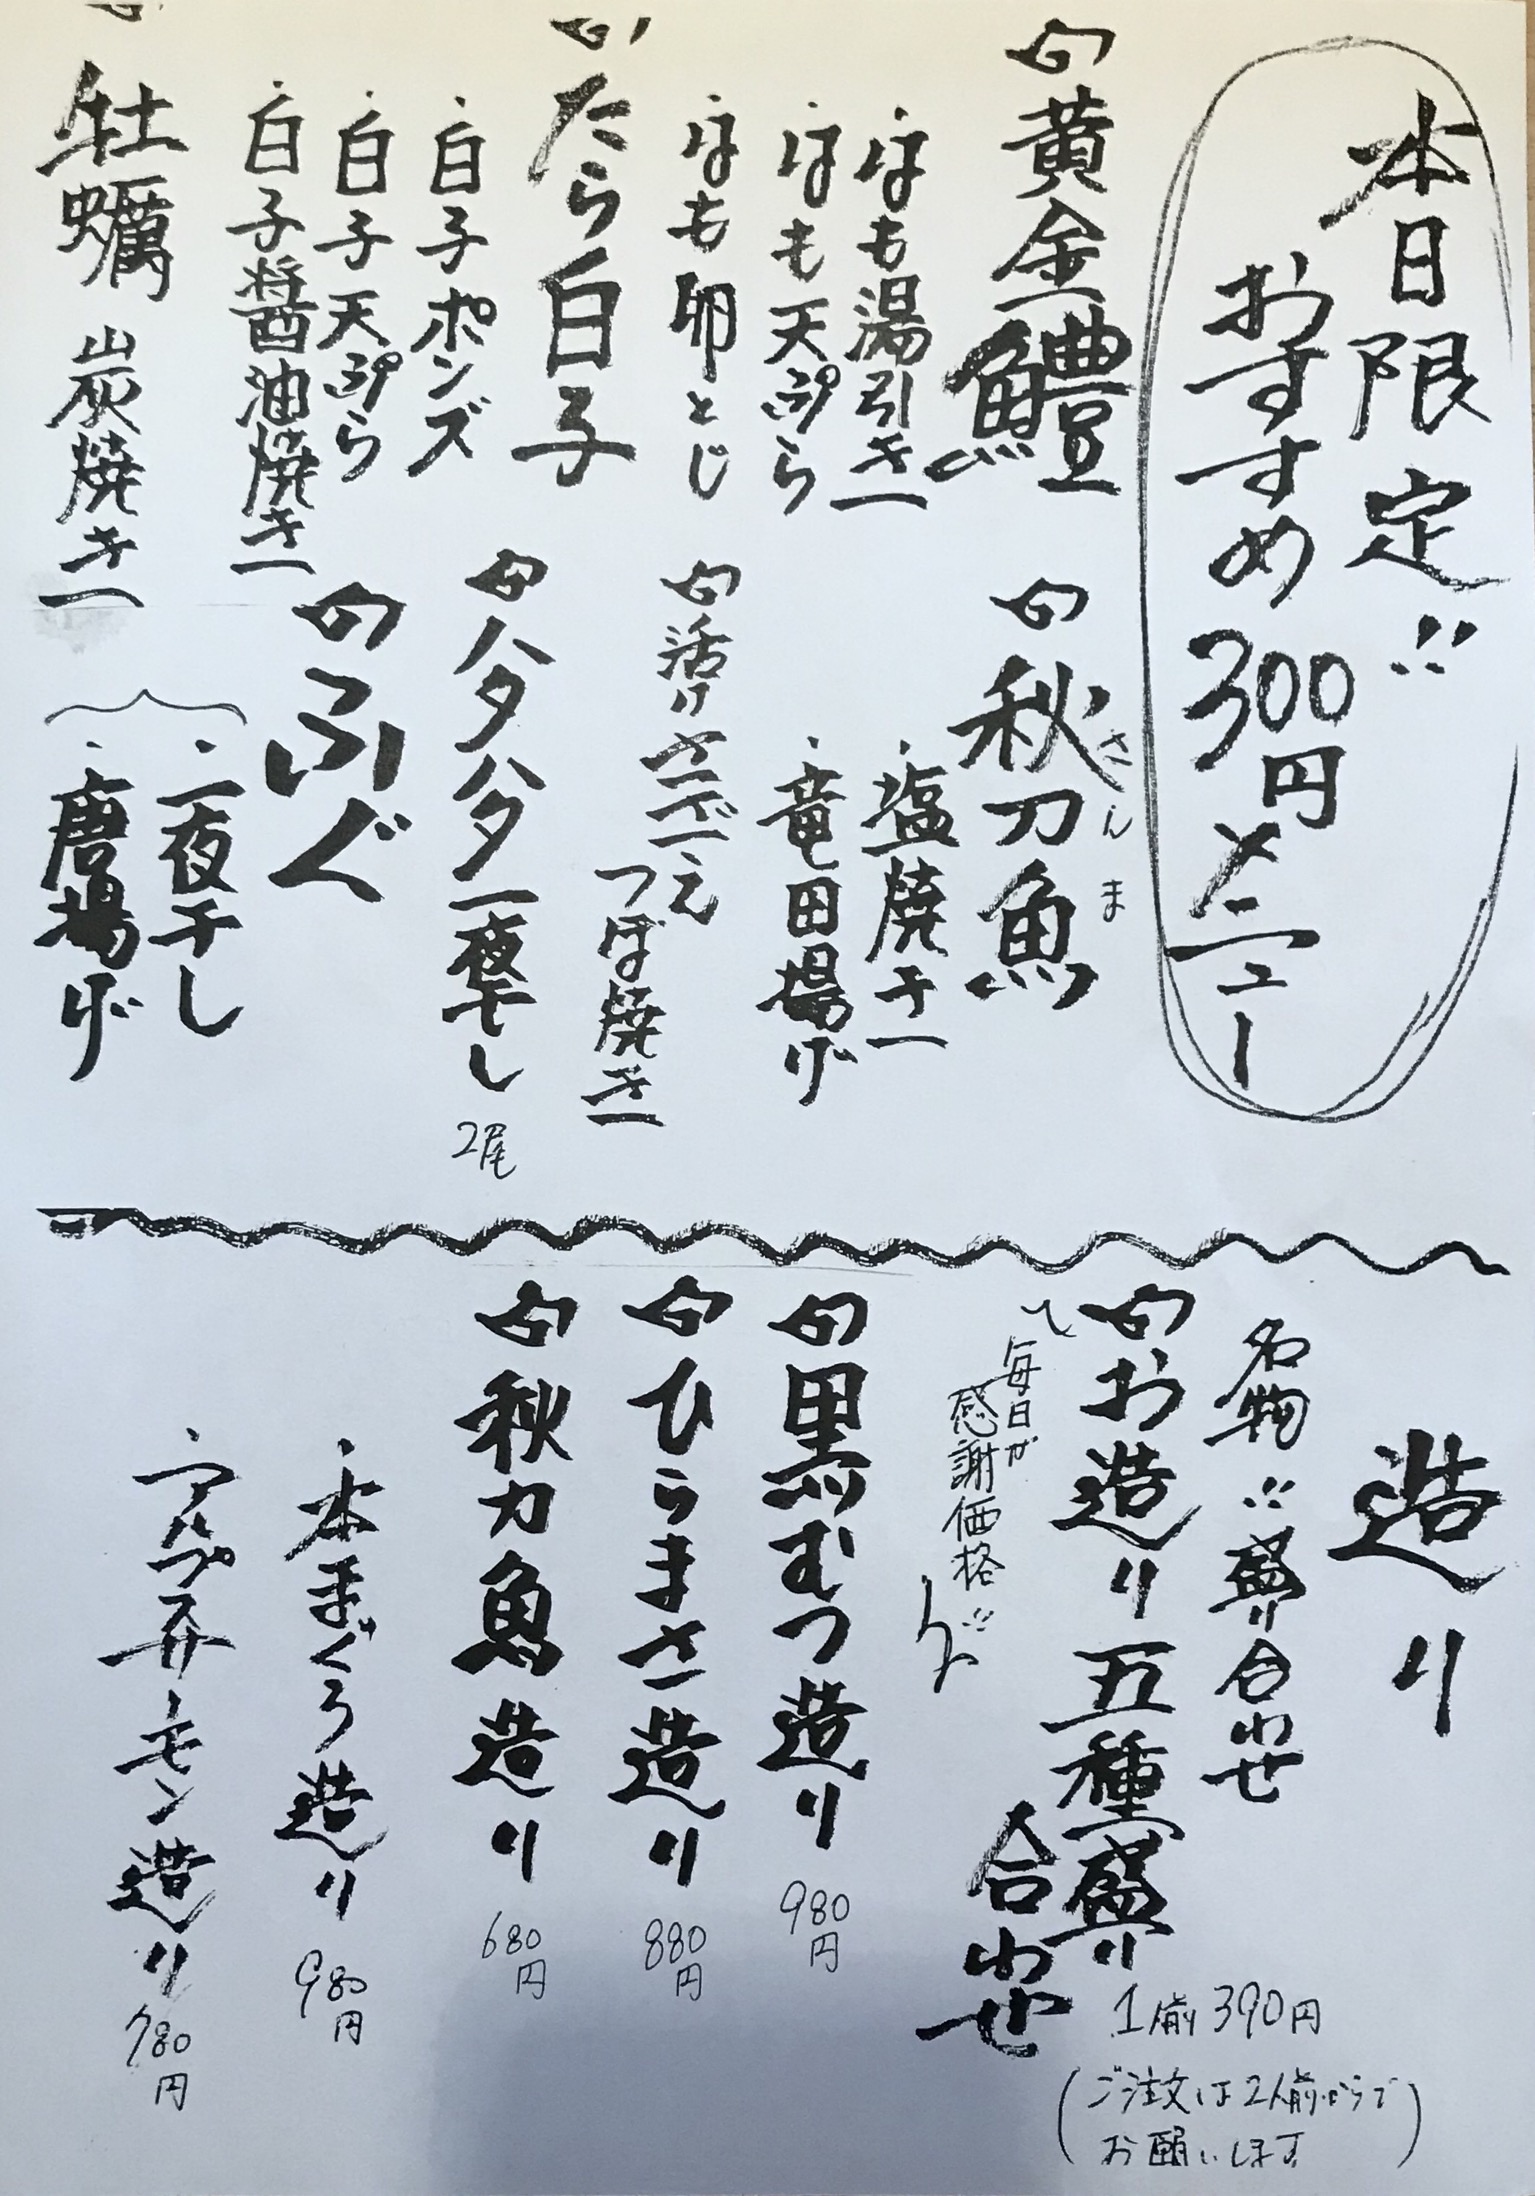 本日限定!!
おすすめ300円メニュー
黄金鱧
・はも湯引き
・はも天ぷら
・はも卵とじ
たら白子
・白子ポンズ
・白子天ぷら
・白子醤油焼き
牡蠣炭焼き
秋刀魚
さんま
・塩焼き
・竜田揚げ
活けさざえ
つぼ焼き
ハタハタ一夜干し
2尾
ふぐ
・一夜干し
・唐揚げ
造り
名物!!盛り合わせ
お造り五種盛り
合わせ
1人前390円
(ご注文は2人前からで
お願いします)
毎日が
感謝価格!!
黒むつ造り
980円
ひらまさ造り
880円
秋刀魚造り
680円
・本まぐろ造り
980円
・アルプスサーモン造り
780円